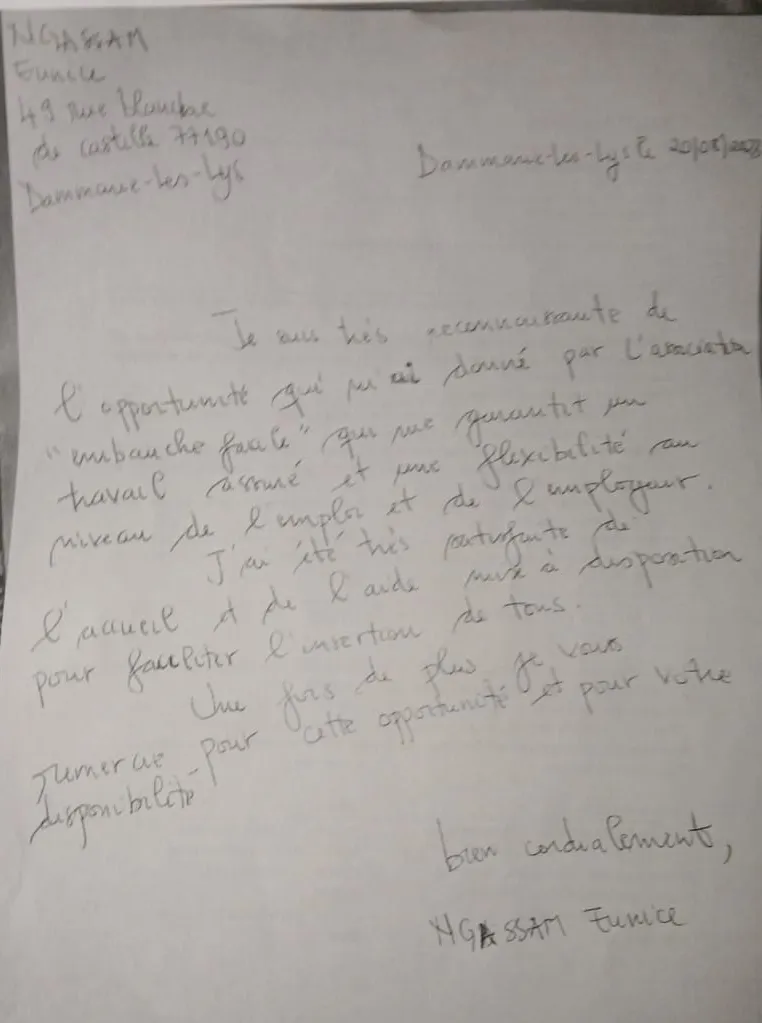 NGASSAM
Eunice
49 rue Blanche
de castille 77190
Dammarie-Les-Lys
Dammarie-les-Lys le 20/08/2023
Je suis très reconnaissante de
l'opportunité qui m'ai donné par L'association
"embauche facile" qui me garantit un
travail assuré et une flexibilité au
niveau de l'emploi et de l'employeur.
J'ai été très satisfaite de
l'accueil et de l'aide mise à disposition
pour faciliter l'insertion de tous.
Une fois de plus je vous
remercie pour cette opportunité et pour votre
disponibilité
bien cordialement,
NGASSAM Eunice